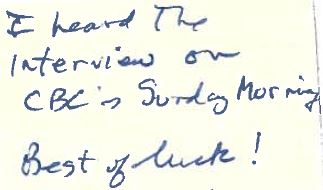 I heard The
Interview on
CBC's Sunday Morning
Best of luck!